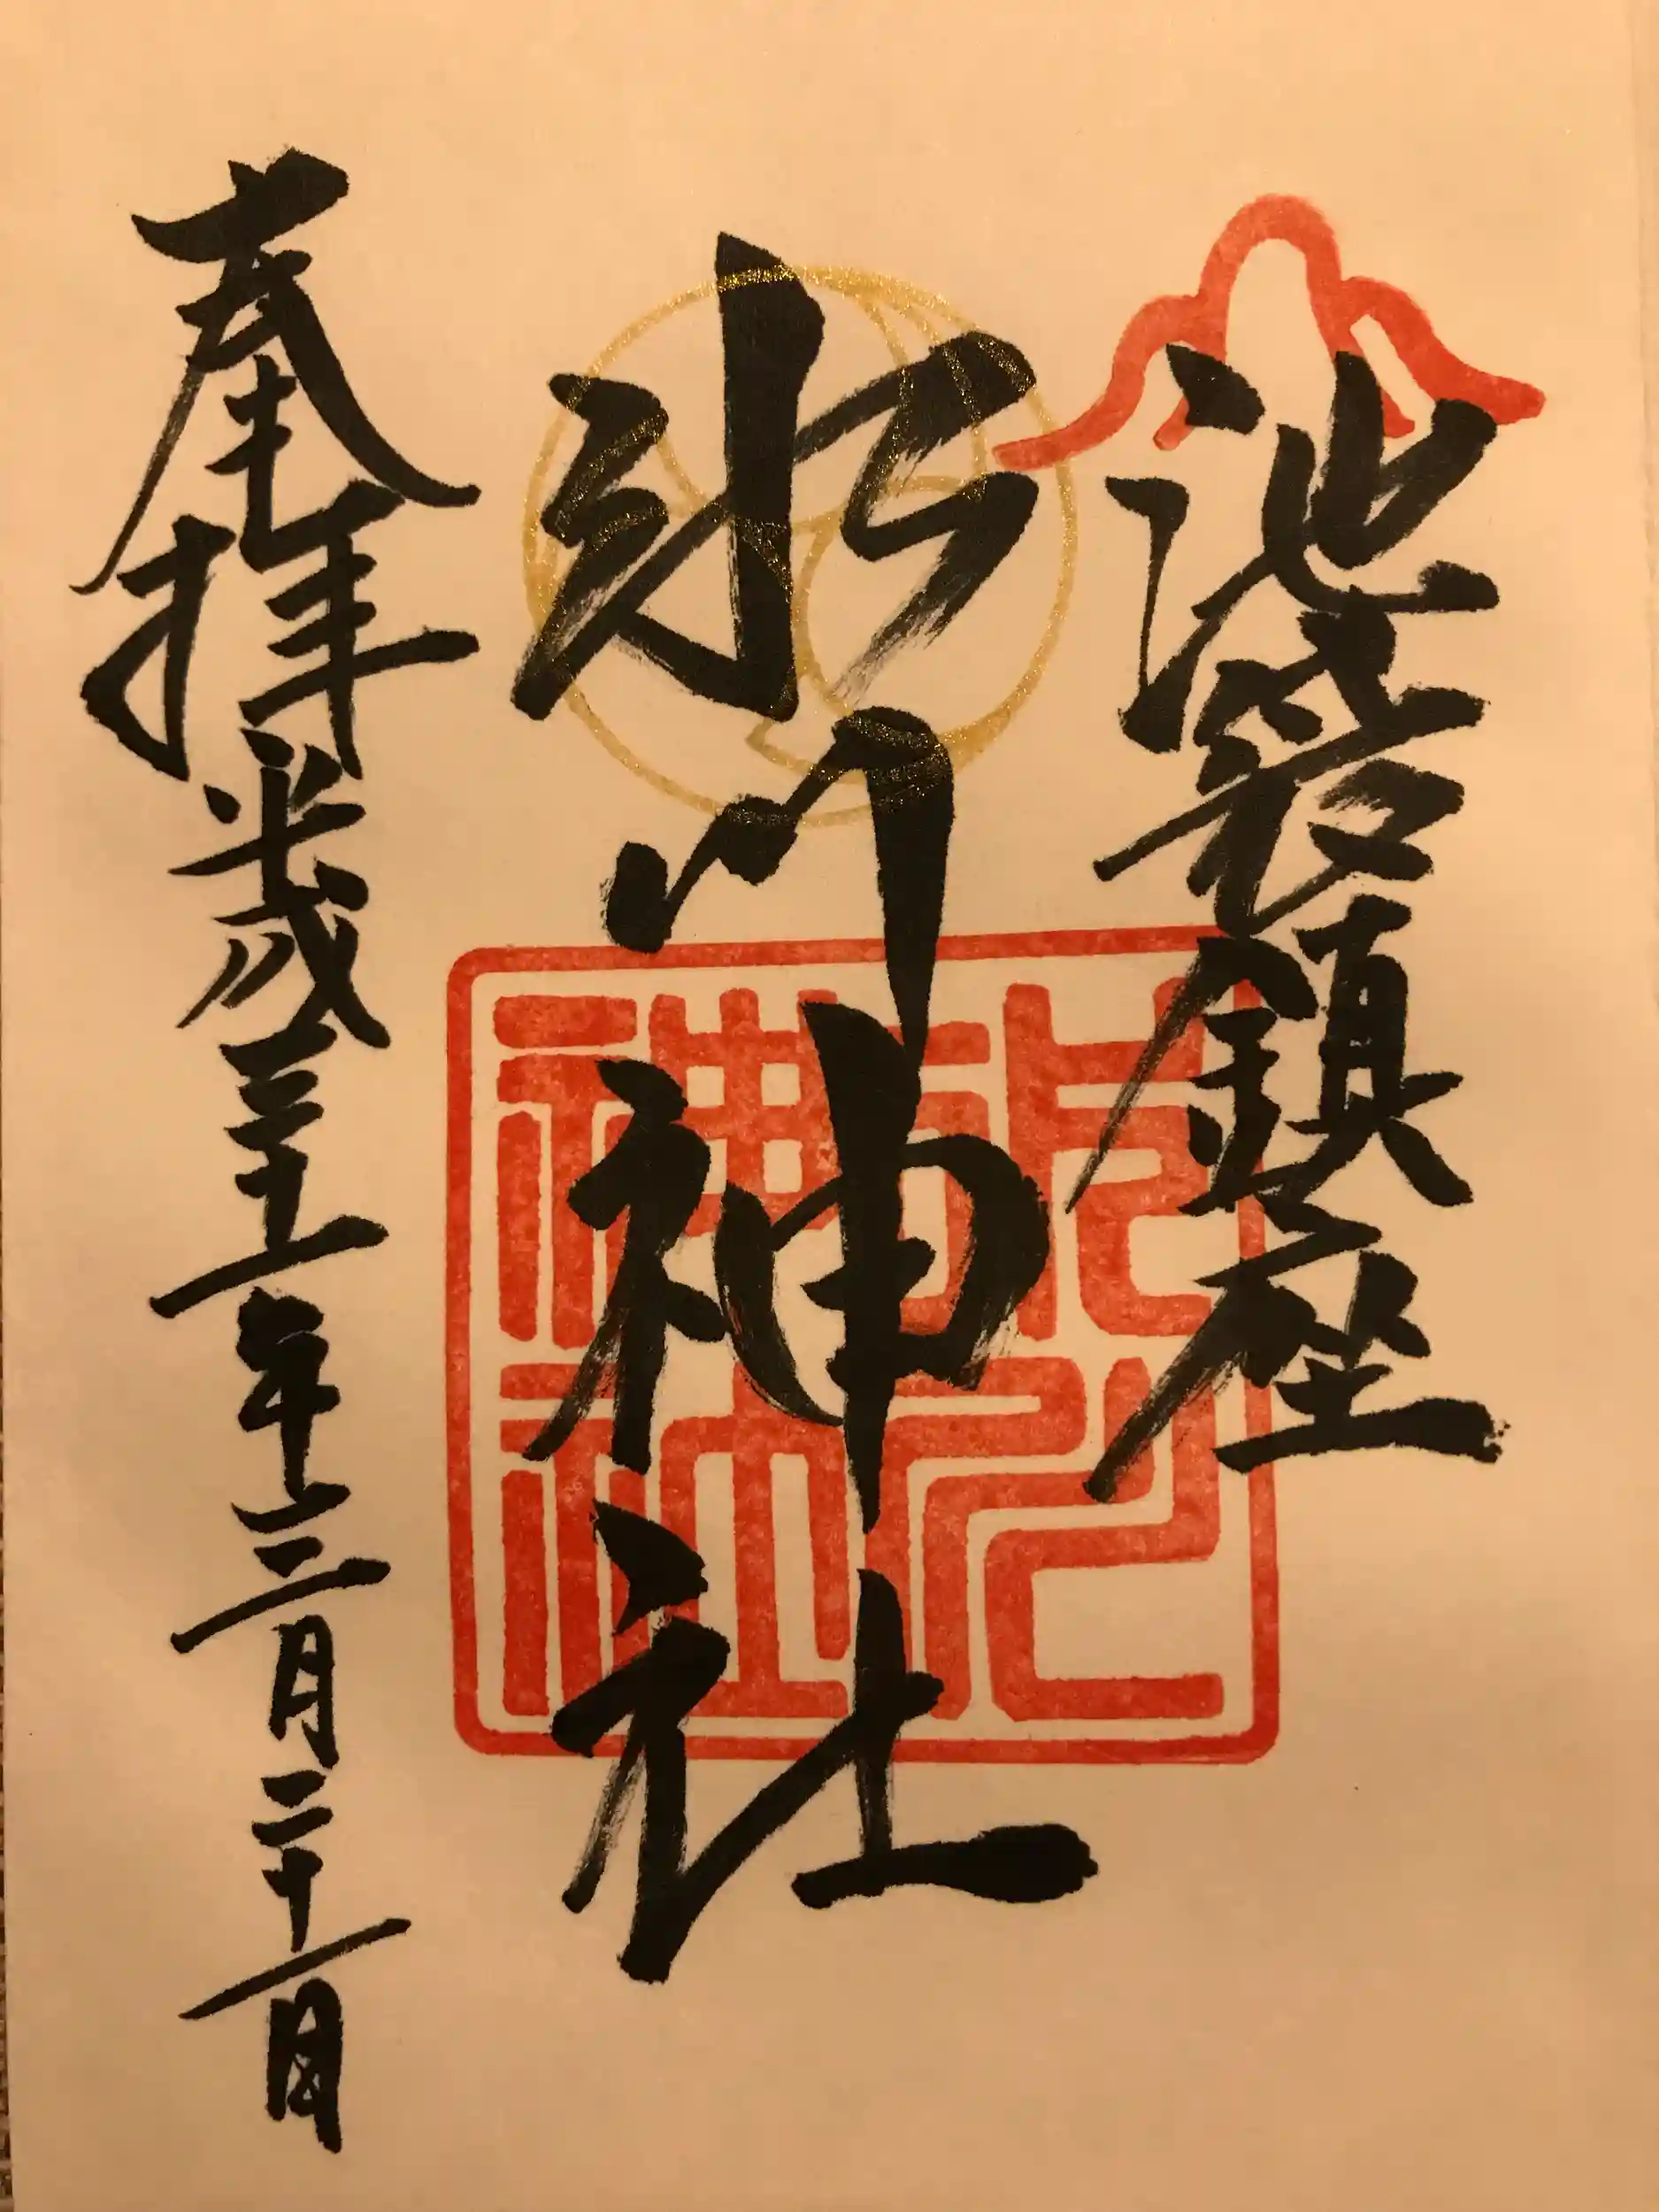 池袋鎮座
氷川神社
氷川神社
奉拝平成三十一年三月二十一日